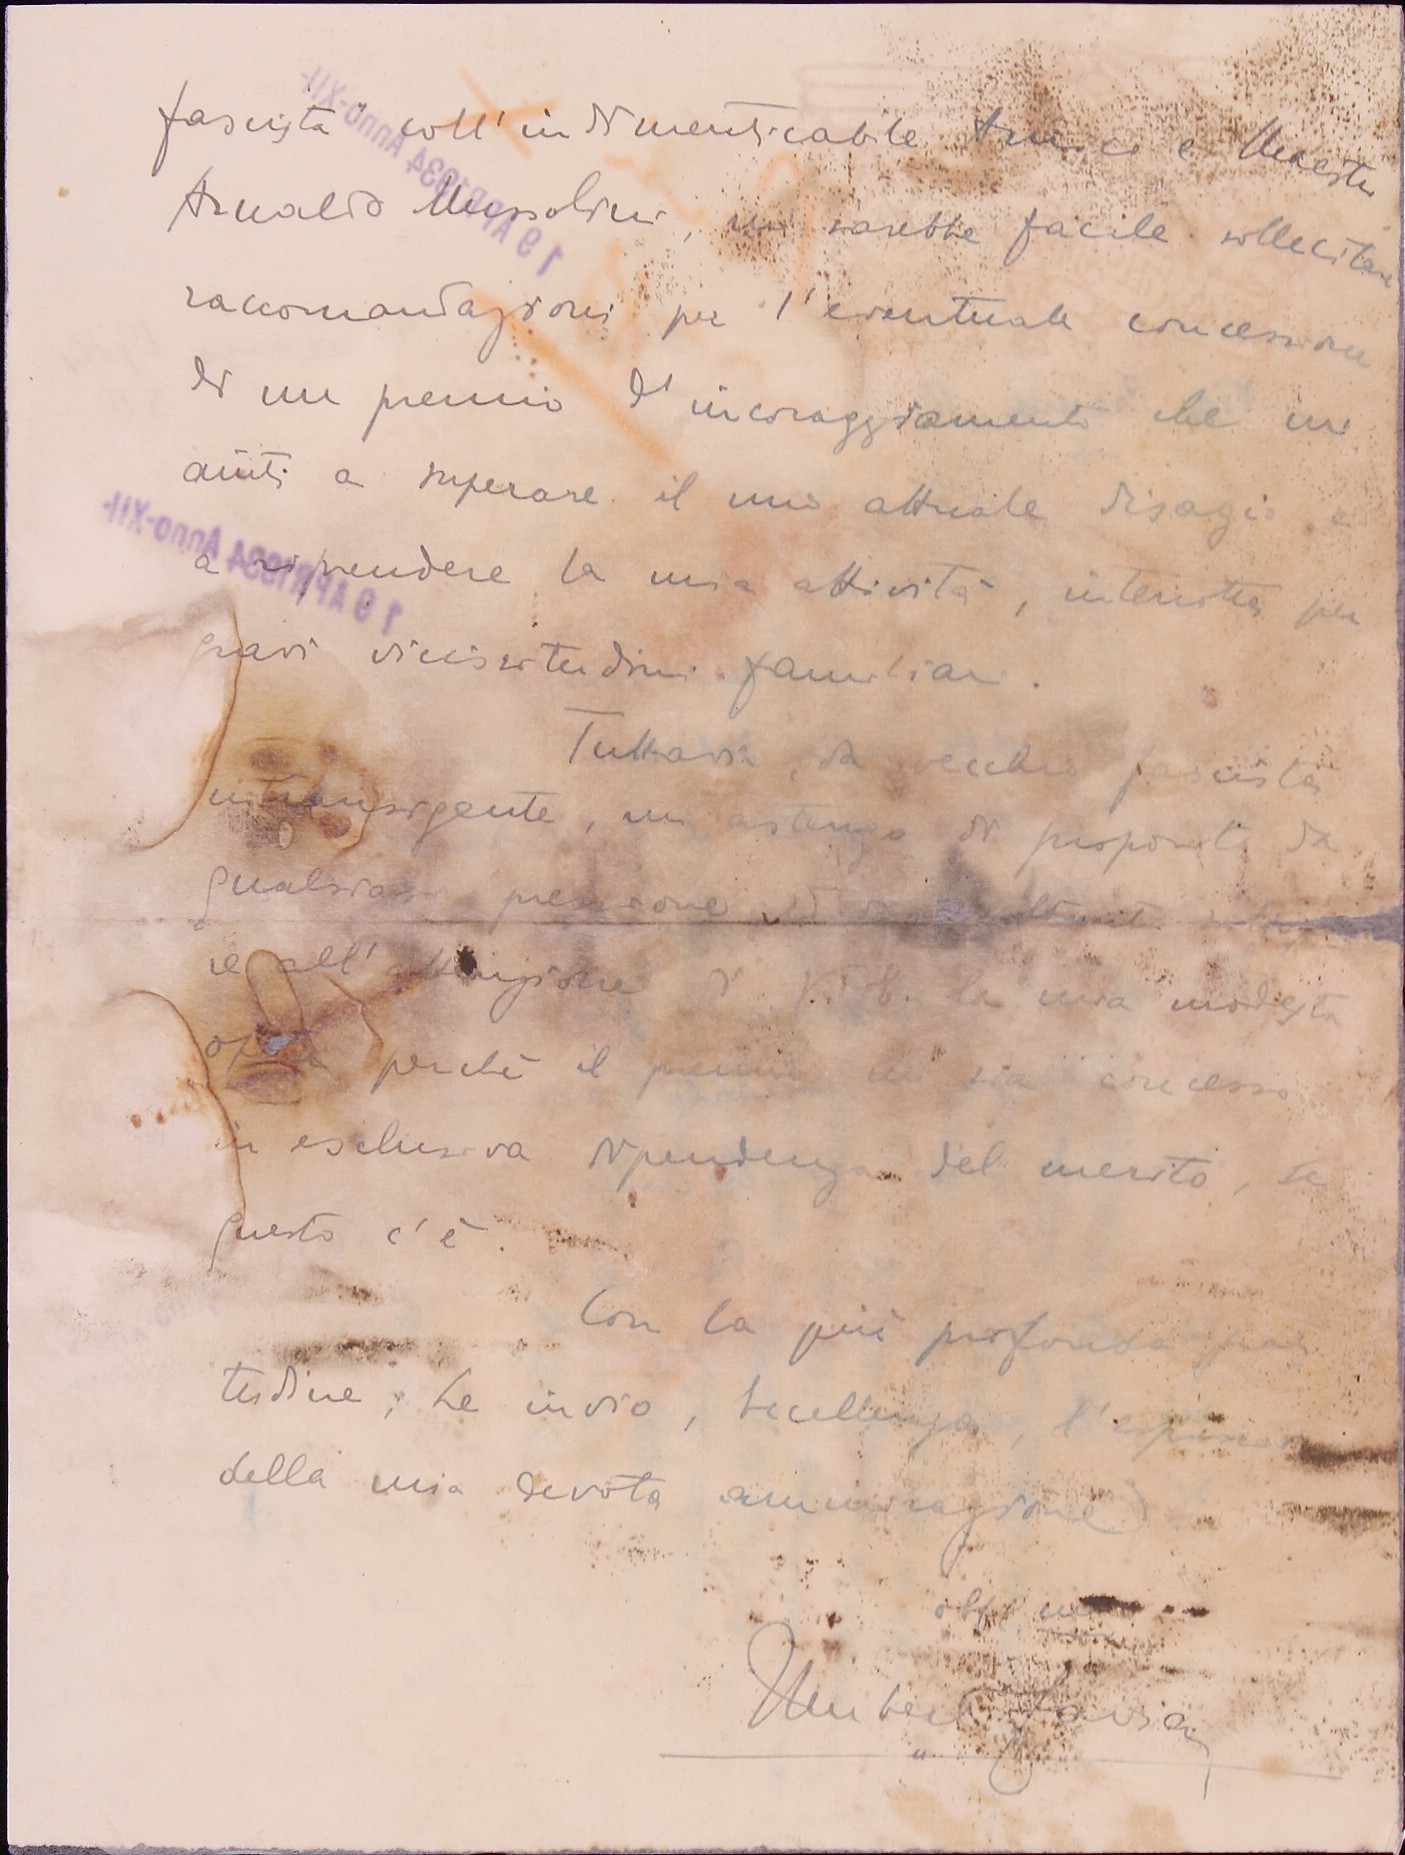 fascista coll'indimenticabile Amico e Maestro
Arnaldo Mussolini, mi sarebbe facile sollecitare
raccomandazioni per l'eventuale concessione
di un premio d'incoraggiamento che mi
aiuti a superare il mio attuale disagio e
a riprendere la mia attività, interrotta per
gravi vicissitudini familiari.
Tuttavia, da vecchio fascista
intransigente, mi astengo di proposito da
qualsiasi pressione
re all'attenzione di V. E. la mia modesta
opera perchè il premio mi sia concesso
in esclusiva dipendenza del merito, se
questo c'è.
Con la più profonda gra
titudine, Le invio, Eccellenza, l'espressione
della mia devota ammirazione
obbl mo
Umberto
19 APR 1934 Anno-XII-
19 APR 1934 Anno-XII-